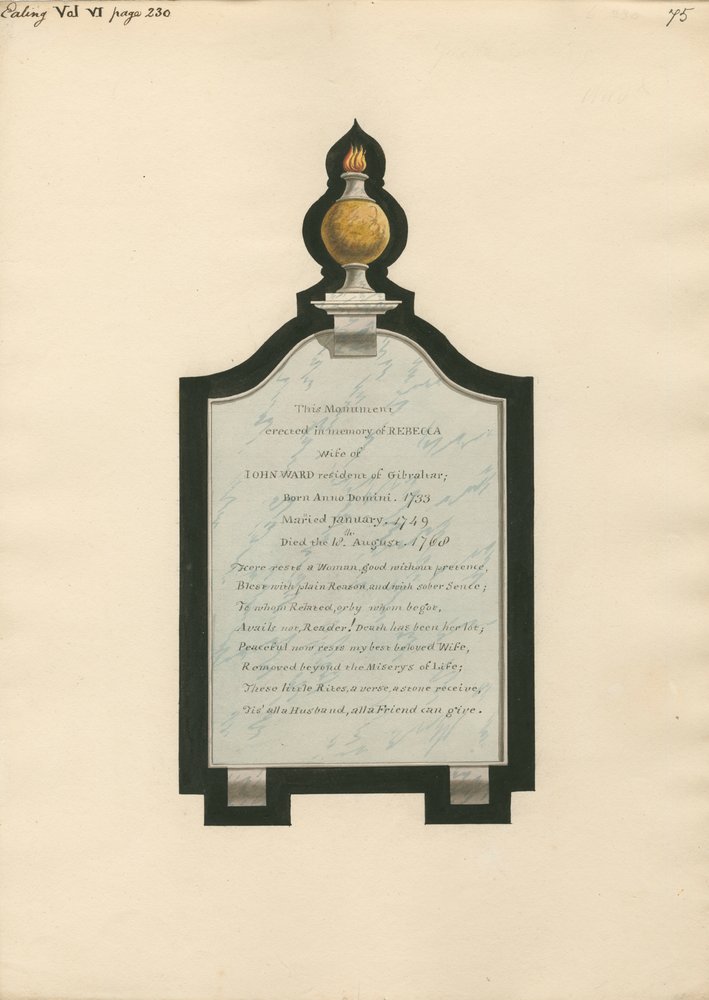 Ealing Vol VI page 230
75
This Monument
erected in memory of REBECCA
Wife of
IOHN WARD resident of Gibraltar;
Born Anno Domini. 1733
Maried January. 1749
Died the 18th August. 1768
Here rests a Woman, good without pretence,
Blest with plain Reason, and with sober Sence;
To whom Related, or by whom begot,
Avails not, Reader! Death has been her lot;
Peaceful now rests my best beloved Wife,
Removed beyond the Miserys of Life;
These little Rites, a verse, a stone receive,
Tis' all a Husband, all a Friend can give.